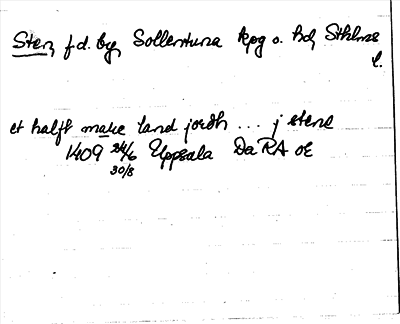 Sten, f.d. by, Sollentuna kpg o. hd, Sthlms
l.
et halft make land jordh ... j stene
1409 24/6 Uppsala DaRA or
30/8